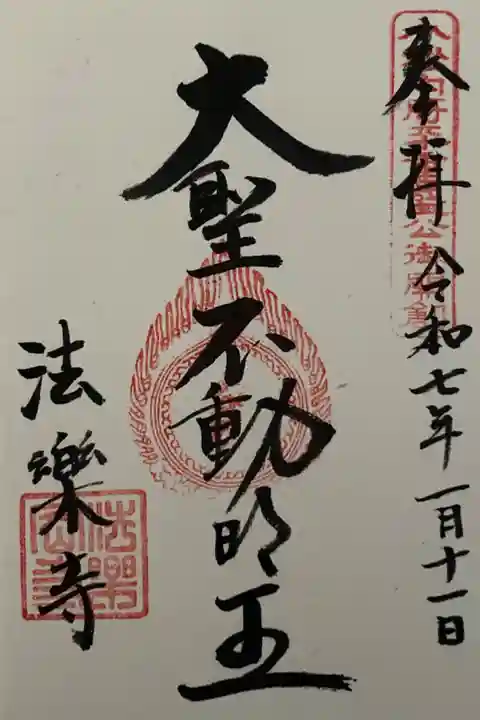 奉拝 令和七年一月十一日
大聖不動明王
法樂寺
法樂寺